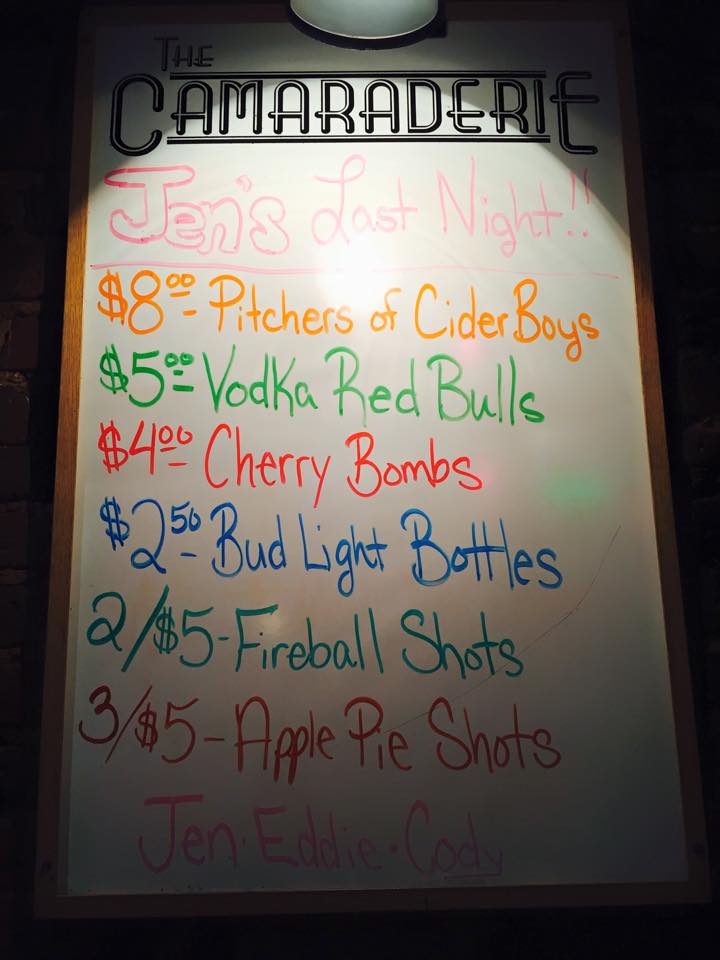 THE
CAMARADERIE
Jen's Last Night!!
$8.00- Pitchers of CiderBoys
$5.00- Vodka Red Bulls
$4.00- Cherry Bombs
$2.50- Bud Light Bottles
2/$5-Fireball Shots
3/$5-Apple Pie Shots
Jen·Eddie·Cody